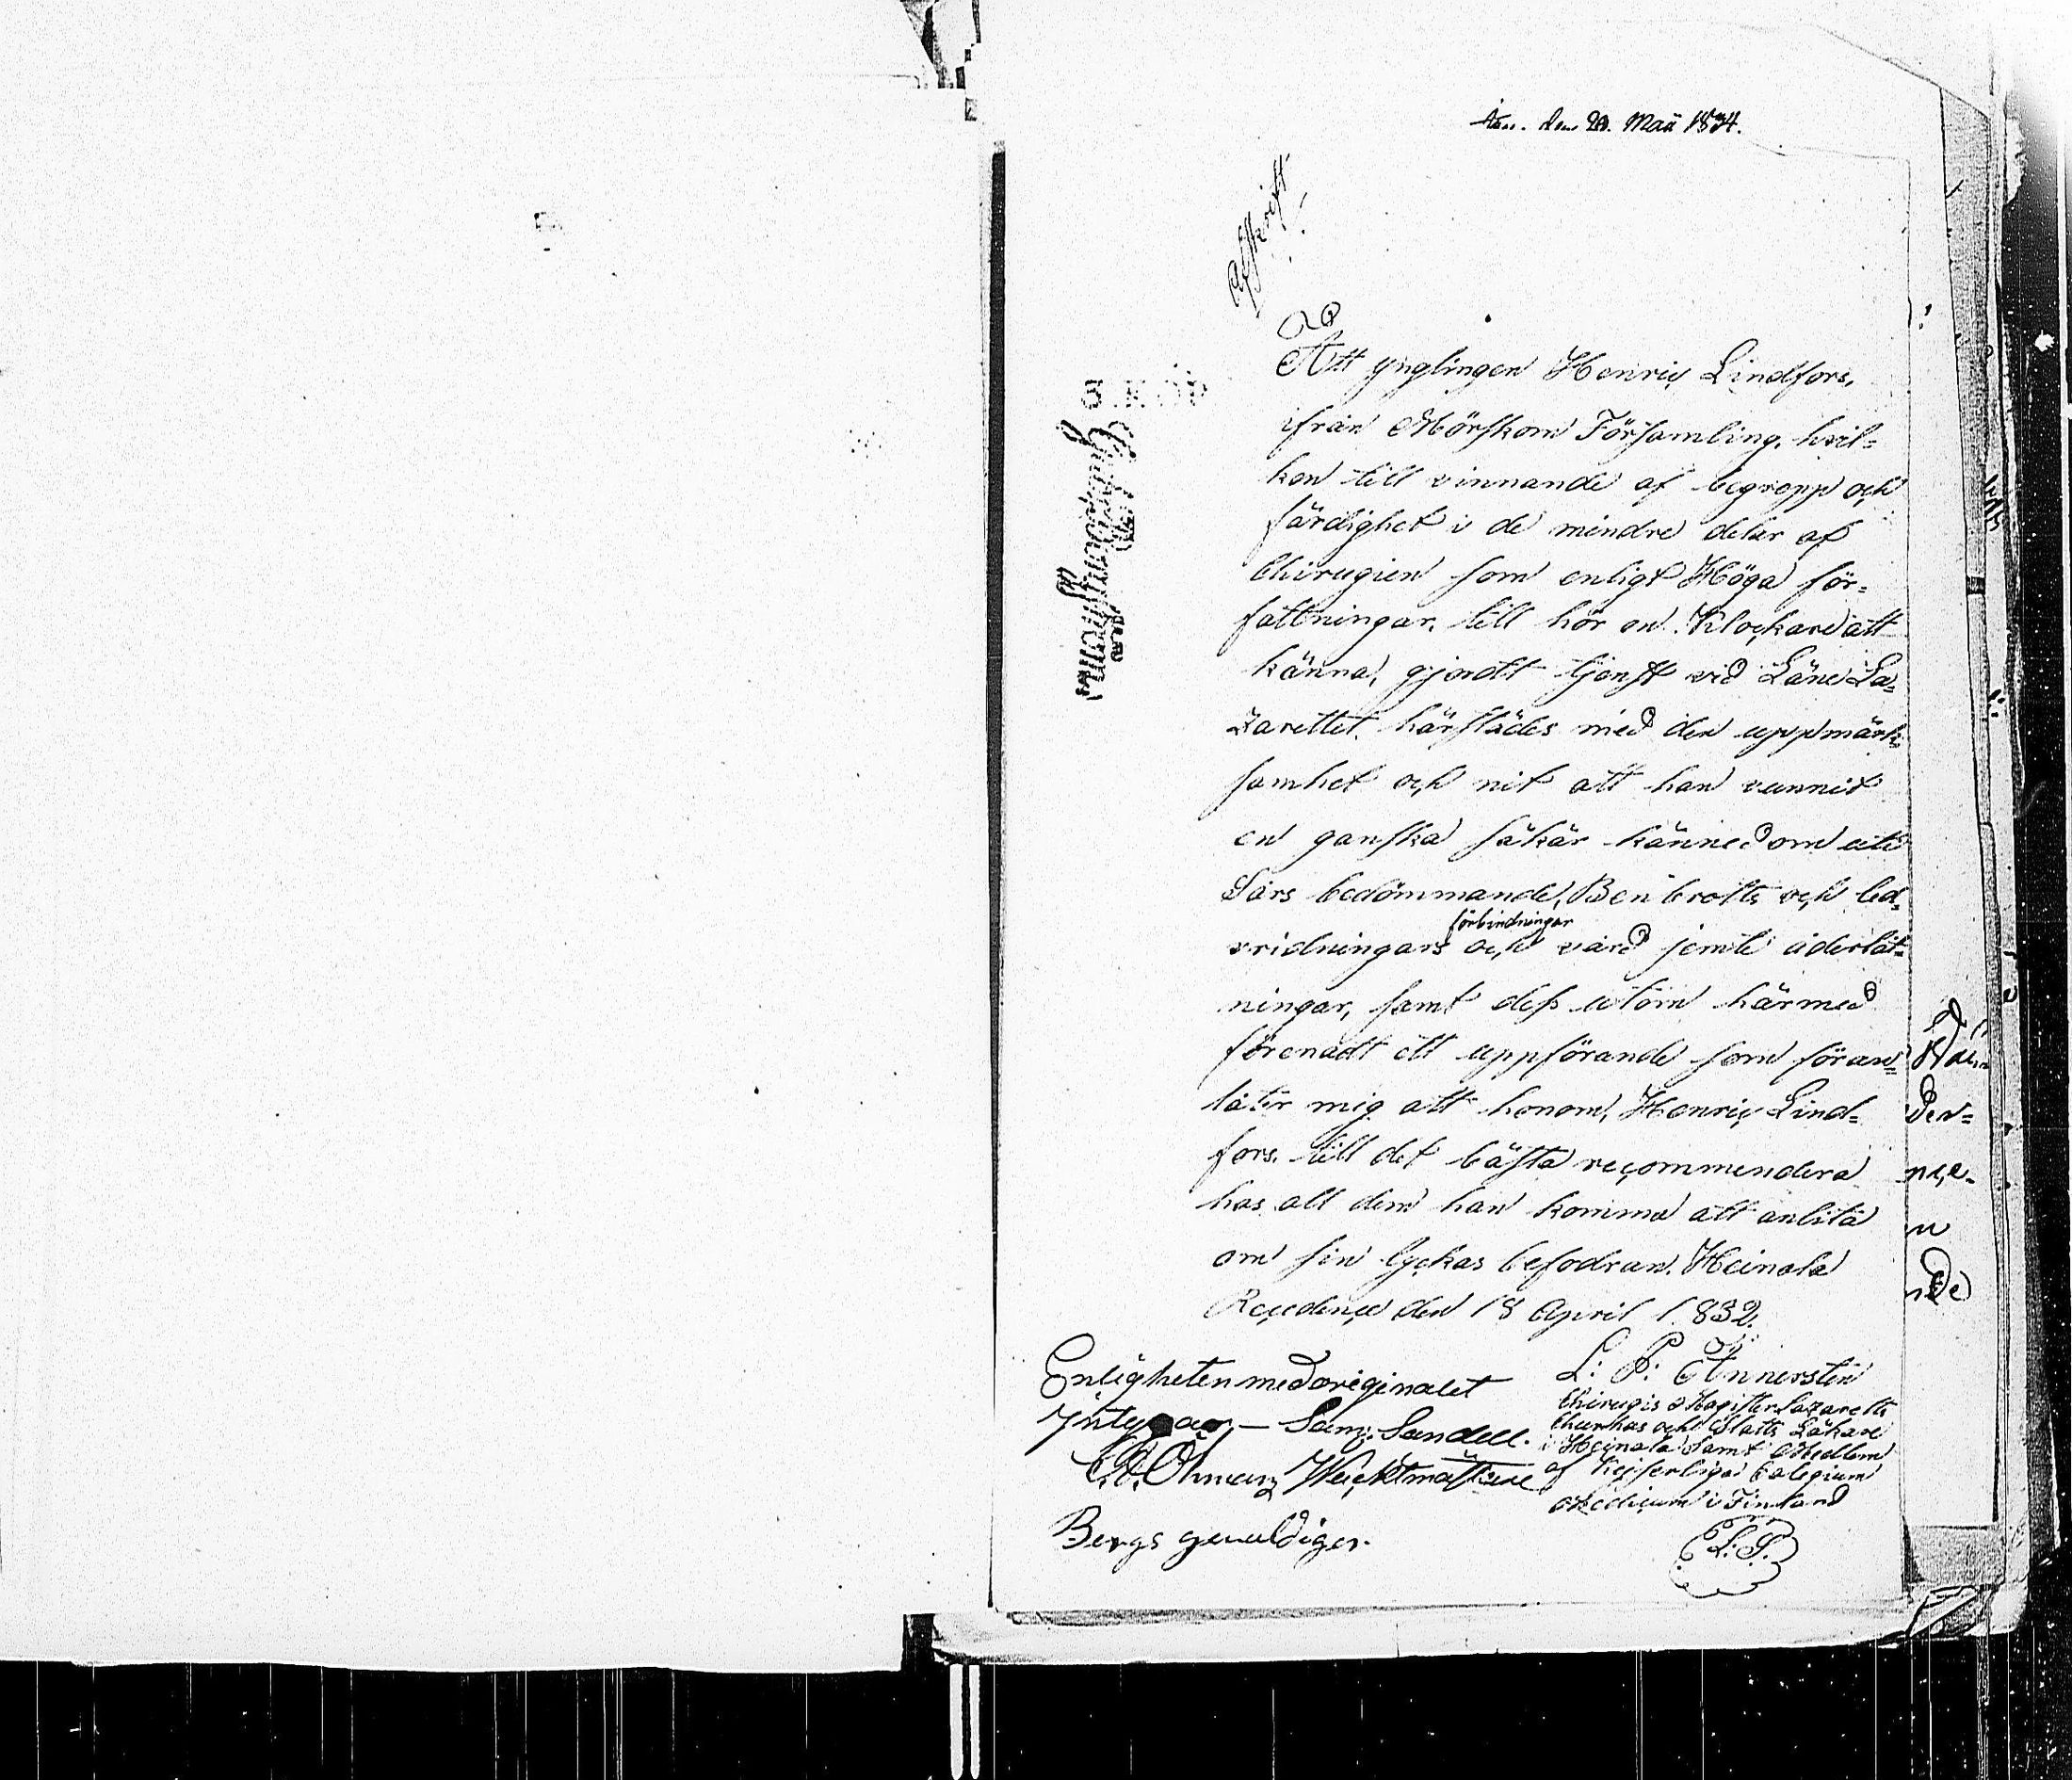 den 20. Maii 1834.
Afskrift
Att ynglingen Henric Lindfors,
ifrån Mörskom Församling, hvil=
ken till vinnande af begrepp och
färdighet i de mindre delar af
Chirugien som enligt Höga för-
fattningar, till hör en Klockare att
känna, gjordt tjenst vid Läne La=
zarettet härstädes med den uppmärk=
samhet och nit att han vunnit
en ganska säkär kännedom uti
Sårs bedömmande, Ben brotts och led=
förbindningar
vridningars och vård jemte åderlåt=
ningar, samt dess utom härmed
förenadt ett uppförande som föran=
låter mig att honom, Henric Lind=
fors, till det bästa recommendera
hos all dem han komma att anlita
om sin lyckas befodran. Heinola
Recidence den 18 April 1832.
L: P: Annerstin
Chirugis Magister Lazaretts
Churhus och Statts Läkare
i Heinola samt Medlem
af Kejserliga Colegium
Medicum i Finland
L.S.
Enligheten med originalet
Intygar — Sam: Sandell.
Öhman Wacktmästare
Bergs gevaldiger.
den=